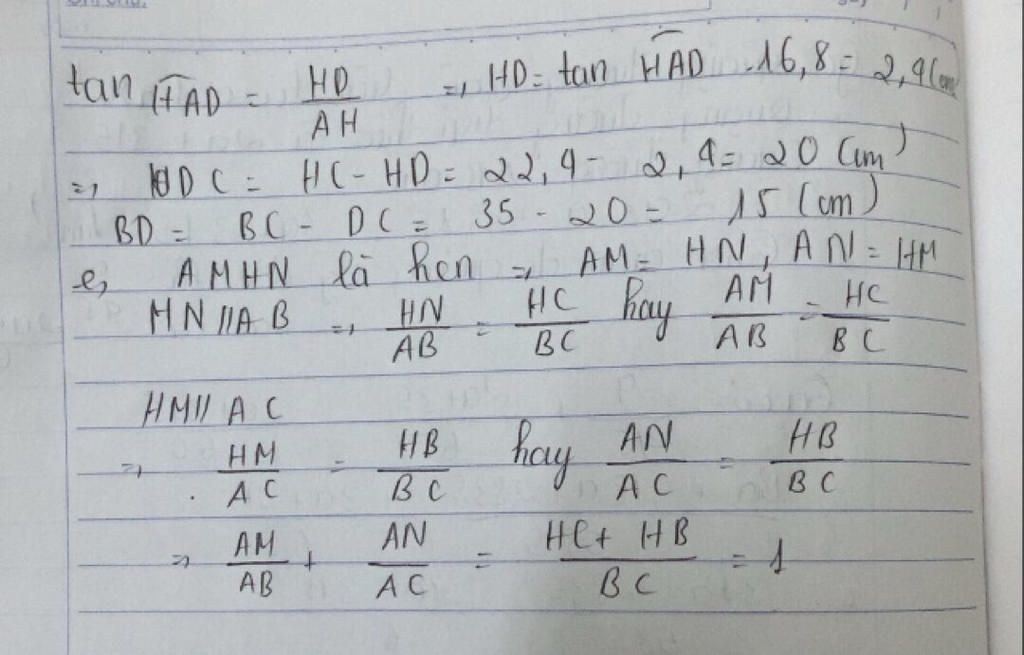 tan HAD = HD/AH => HD = tan HAD . 16,8 = 2,4 (cm
=> DC = HC - HD = 22,4 - 2,4 = 20 (cm)
BD = BC - DC = 35 - 20 = 15 (cm)
e, AMHN là hcn => AM = HN, AN = HM
MN // AB => HN/AB = HC/BC hay AM/AB = HC/BC
HM // AC
=> HM/AC = HB/BC hay AN/AC = HB/BC
=> AM/AB + AN/AC = HC + HB/BC = 1